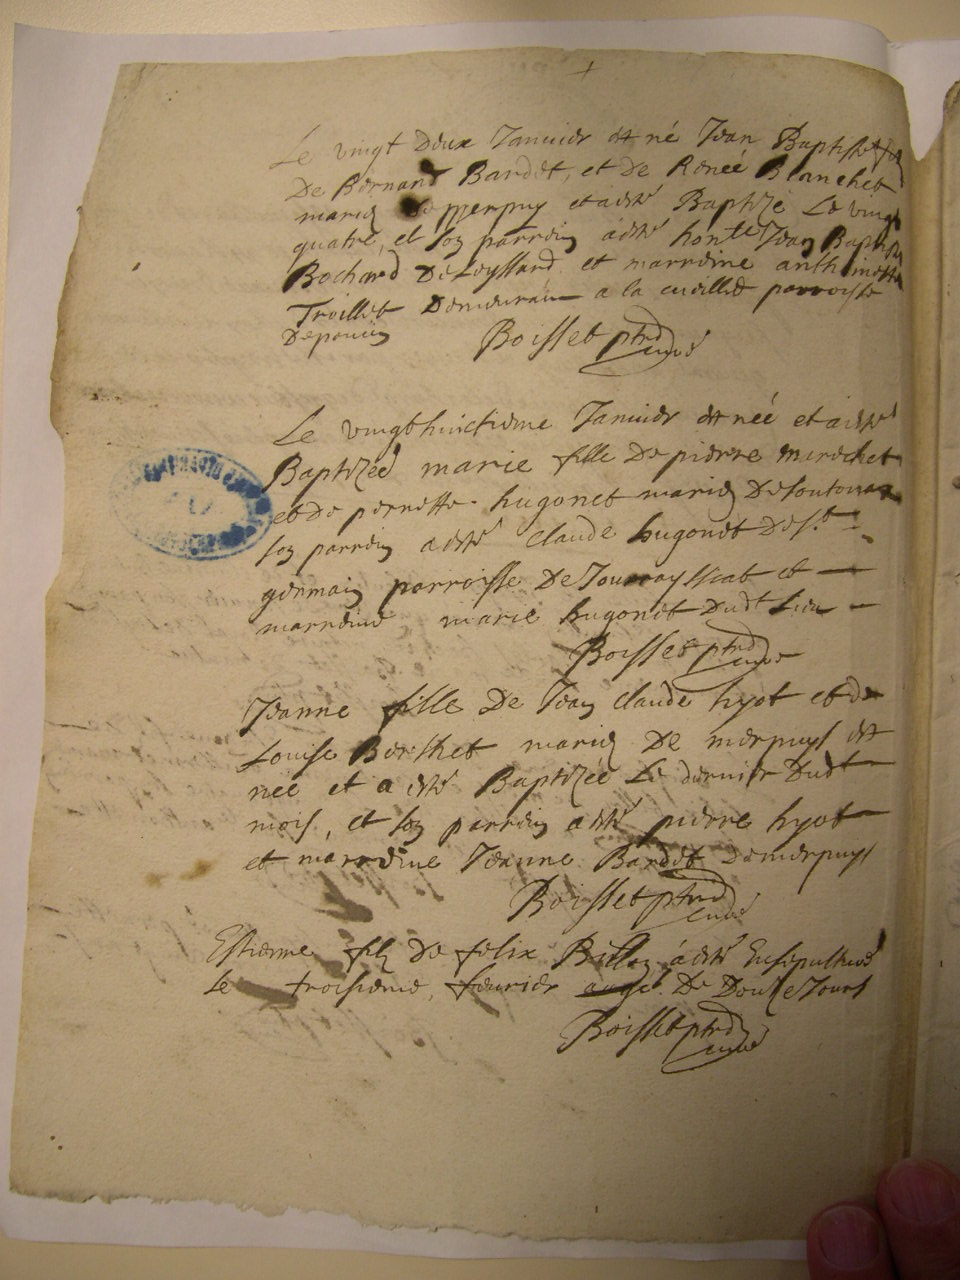 Le vingt deux Janvier est né Jean Baptiste fils
De Bernard Bardet, et de Renée Blanchet
mariez de merpuy et a esté Baptizé Le vingt
quatre, et son parrein a esté honte Jean Baptiste
Bochard De Loyssard et marreine anthoinette
Troillet Demeurant a la cueillie parroisse
De poncin
Boisset ptre curé
Le vingthuictieme Janvier est née et a esté
Baptizée marie fille De pierre marechet
et de pernette hugonet mariez De
son parrein a esté Claude hugonet De St
germain parroisse De et
marreine marie hugonet Dudt Lieu
Boisset ptre curé
Jeanne fille De Jean Claude hyot et de
Louise Berthet mariez De merpuys est
née et a esté Baptizée Le dernier Dudt
mois, et son parrein a esté pierre hyot
et marreine Jeanne Bardet De merpuys
Boisset ptre curé
Estienne filz De felix Billon a esté Ensepulturé
Le troisieme, feurier De Douze Jours
Boisset ptre curé